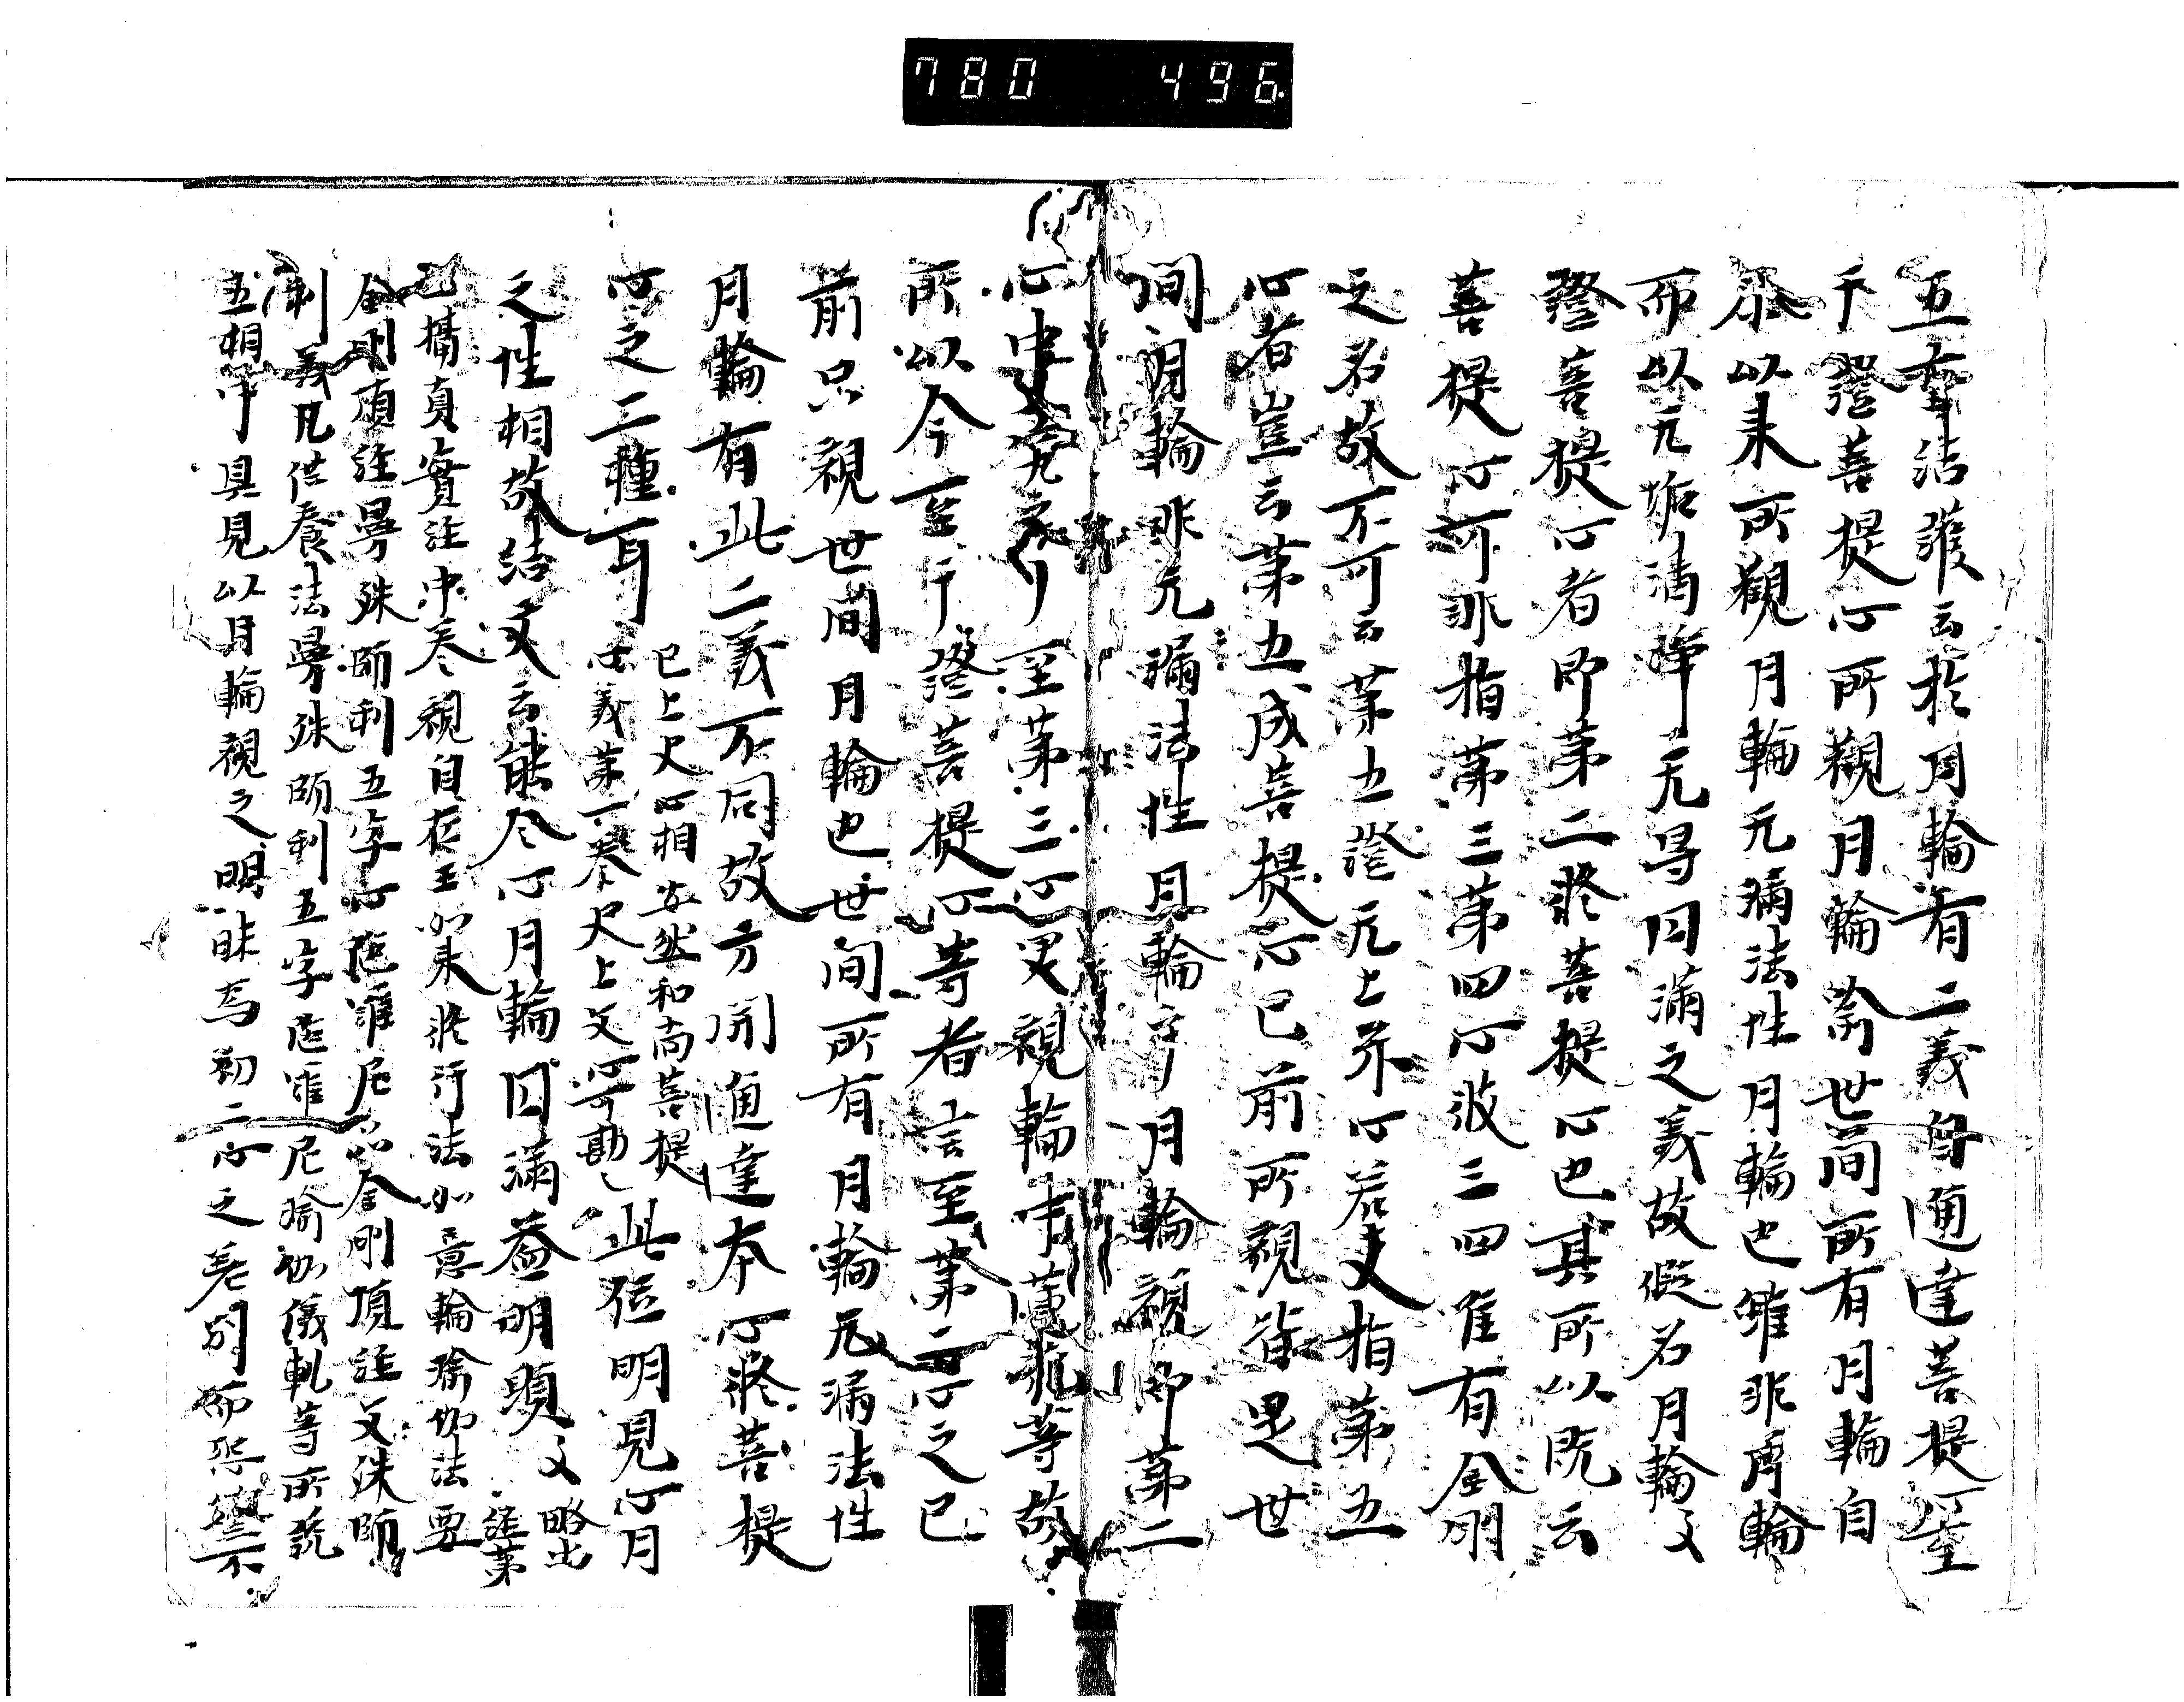 780 496
五牽結護云於月輪有二義自通達菩提心至
于證菩提心所觀月輪喩世間所有月輪自
尒以来所觀月輪无漏法性月輪也雖非月輪
而以无垢清浄无㝵円滿之義故假名月輪文
證菩提心者即第二修菩提心也其所以既云
菩提心可非指第三第四心彼三四唯有金剛
之名故不可云第五證无上尒心若又指第五
心者豈云第五成菩提心已前所觀皆是世
間月輪非无漏法性月輪乎月輪觀即第二
心中究竟了至第三心更觀輪中蓮花等故
所以今至于證菩提心等者言至第二心之已
前只觀世間月輪也世間所有月輪无漏法性
月輪有此二義不同故方開通達本心修菩提
心之二種耳
已上尺心相安然和尚菩提
心義第一巻尺上文心可勘之
此位明見心月
之性相故結文云能令心月輪円滿益明顯文
略出
經第
已攝真實經中巻觀自在王如来修行法如意輪瑜伽法要
金剛頂經曼殊師利五字心陀羅尼品金剛頂經文殊師
利義凡供養法曼殊師利五字陀羅尼瑜伽儀軌等所説
五相中具見以月輪觀之明昧為初二心之差別